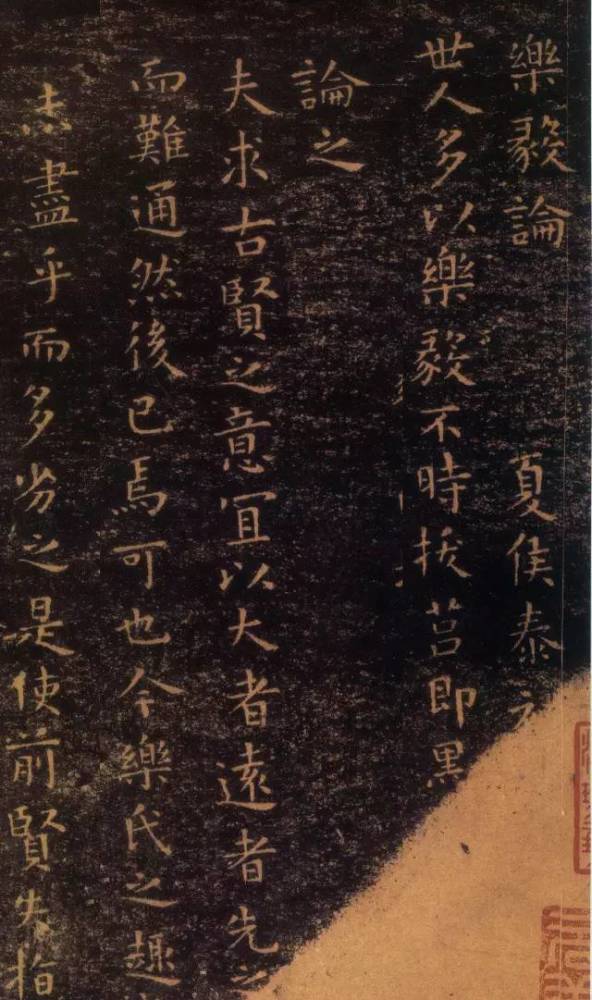 樂毅論 夏侯泰
世人多以樂毅不時拔莒即墨
論之
夫求古賢之意宜以大者遠者先之
而難通然後已焉可也今樂氏之趣
未盡乎而多劣之是使前賢失指